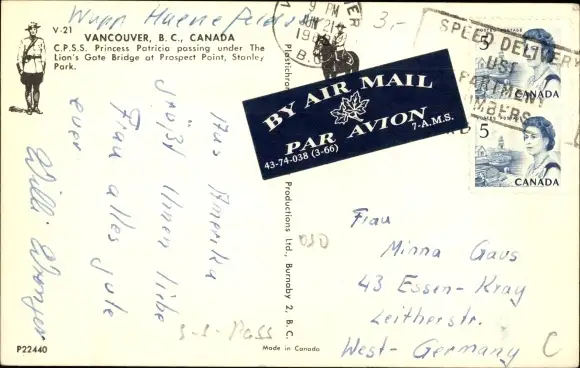 3.-
V-21
VANCOUVER, B. C., CANADA
C.P.S.S. Princess Patricia passing under the
Lion's Gate Bridge at Prospect Point, Stanley
Park.
Aus Amerika
grüßt Ihnen liebe
Frau alles gute
euer
Willi
P22440
Plastichrome
Productions Ltd., Burnaby 2, B. C.
Made in Canada
9 PM
JUN 21
19
B.C.
SPEED DELIVERY
USE
APARTMENT
NUMBERS
BY AIR MAIL
PAR AVION
43-74-038 (3-66)
7-A.M.S.
POSTES POSTAGE
5
CANADA
POSTES POSTAGE
5
CANADA
Frau
Minna Gaus
43 Essen-Kray
Leitherstr.
West-Germany
C